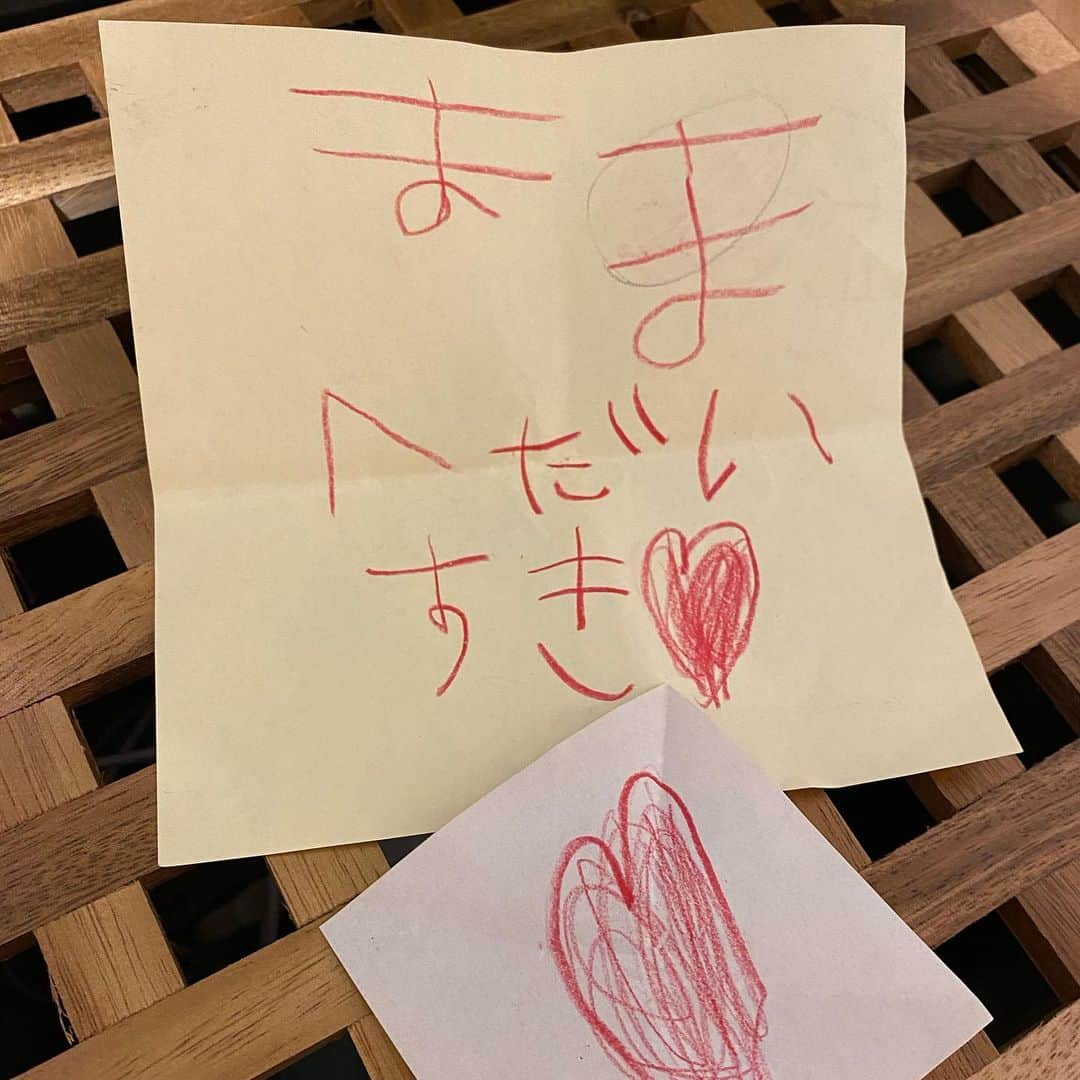 まま
へだい
すき